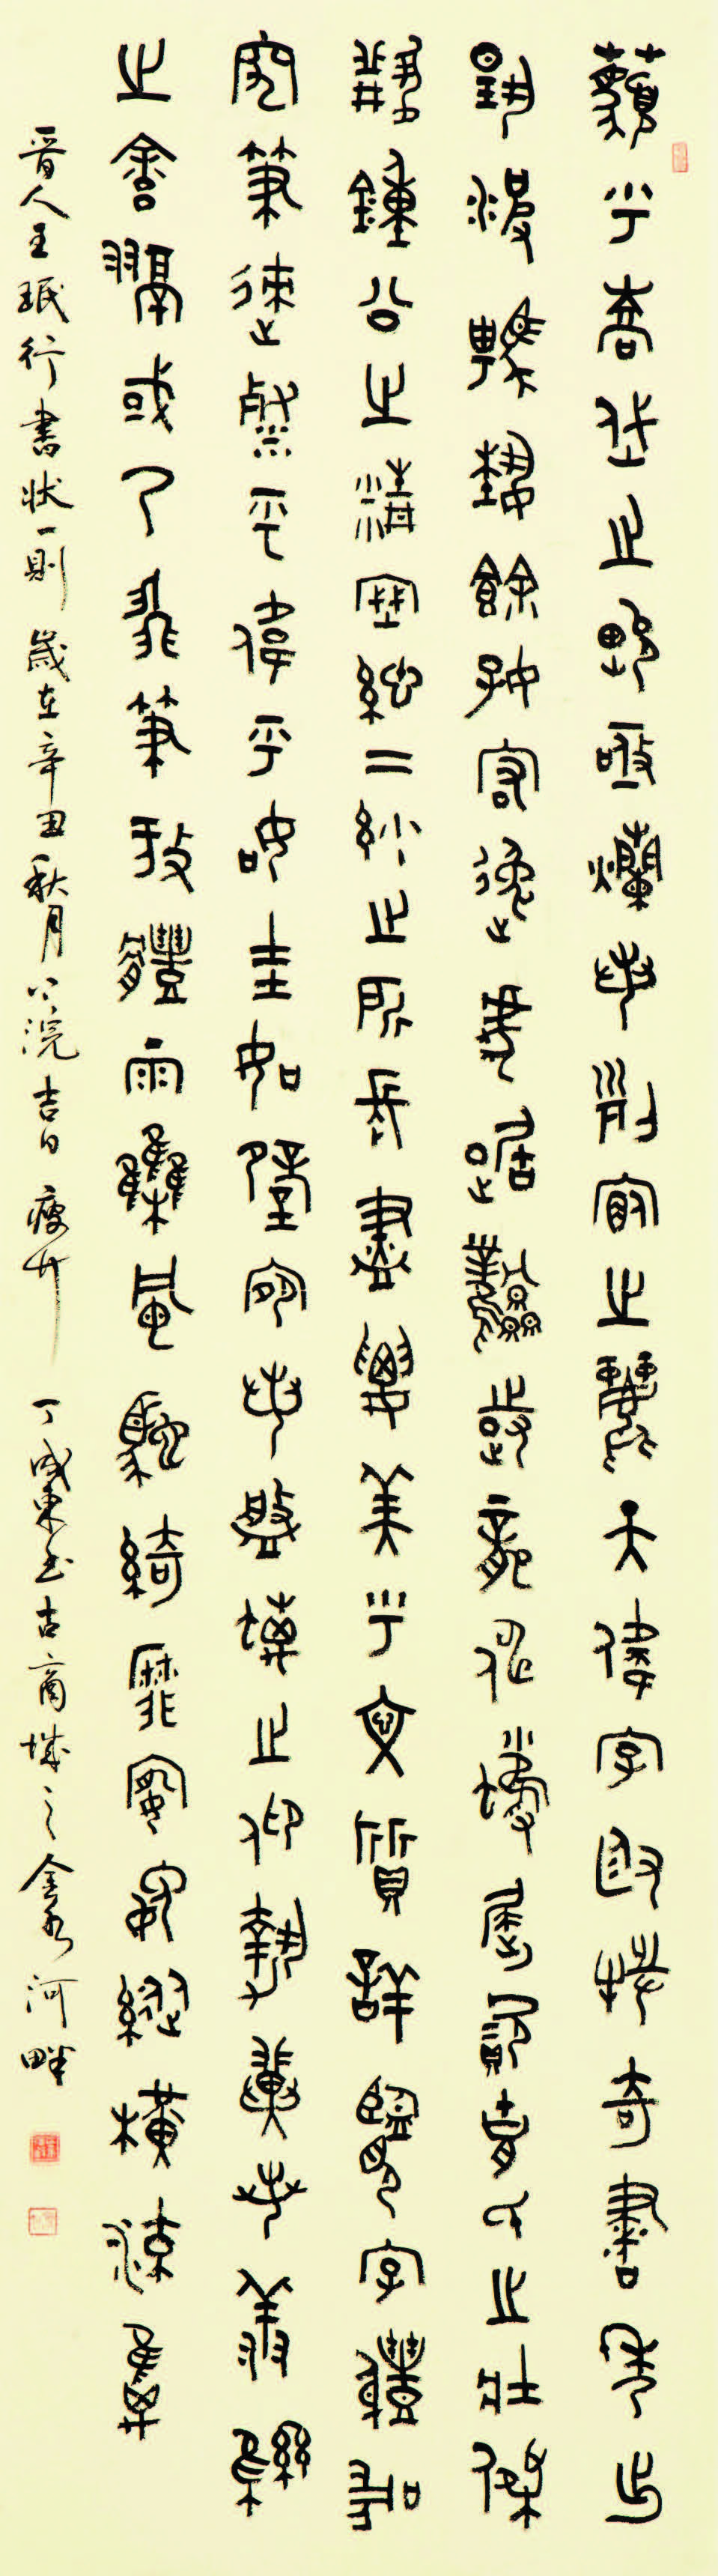 藐乎嵩岱之峻極爛若列宿之麗天偉字既挺奇書秀出
揚波騁藝餘妍宏逸虎踞鳳跱龍伸蠖屈資胡氏之壯傑
兼鍾公之精密總二妙之所長盡衆美乎文質詳覽字體尋
究筆迹粲乎偉乎如圭如璧宛若盤螭之仰勢翼若翔鸞
之舒翮或乃飛筆致體雨驟風馳綺靡婉娩縱橫流離
晉人王珉行書狀一則 歲在辛丑秋月下浣吉日 瘦竹 丁成東書古商城之金水河畔